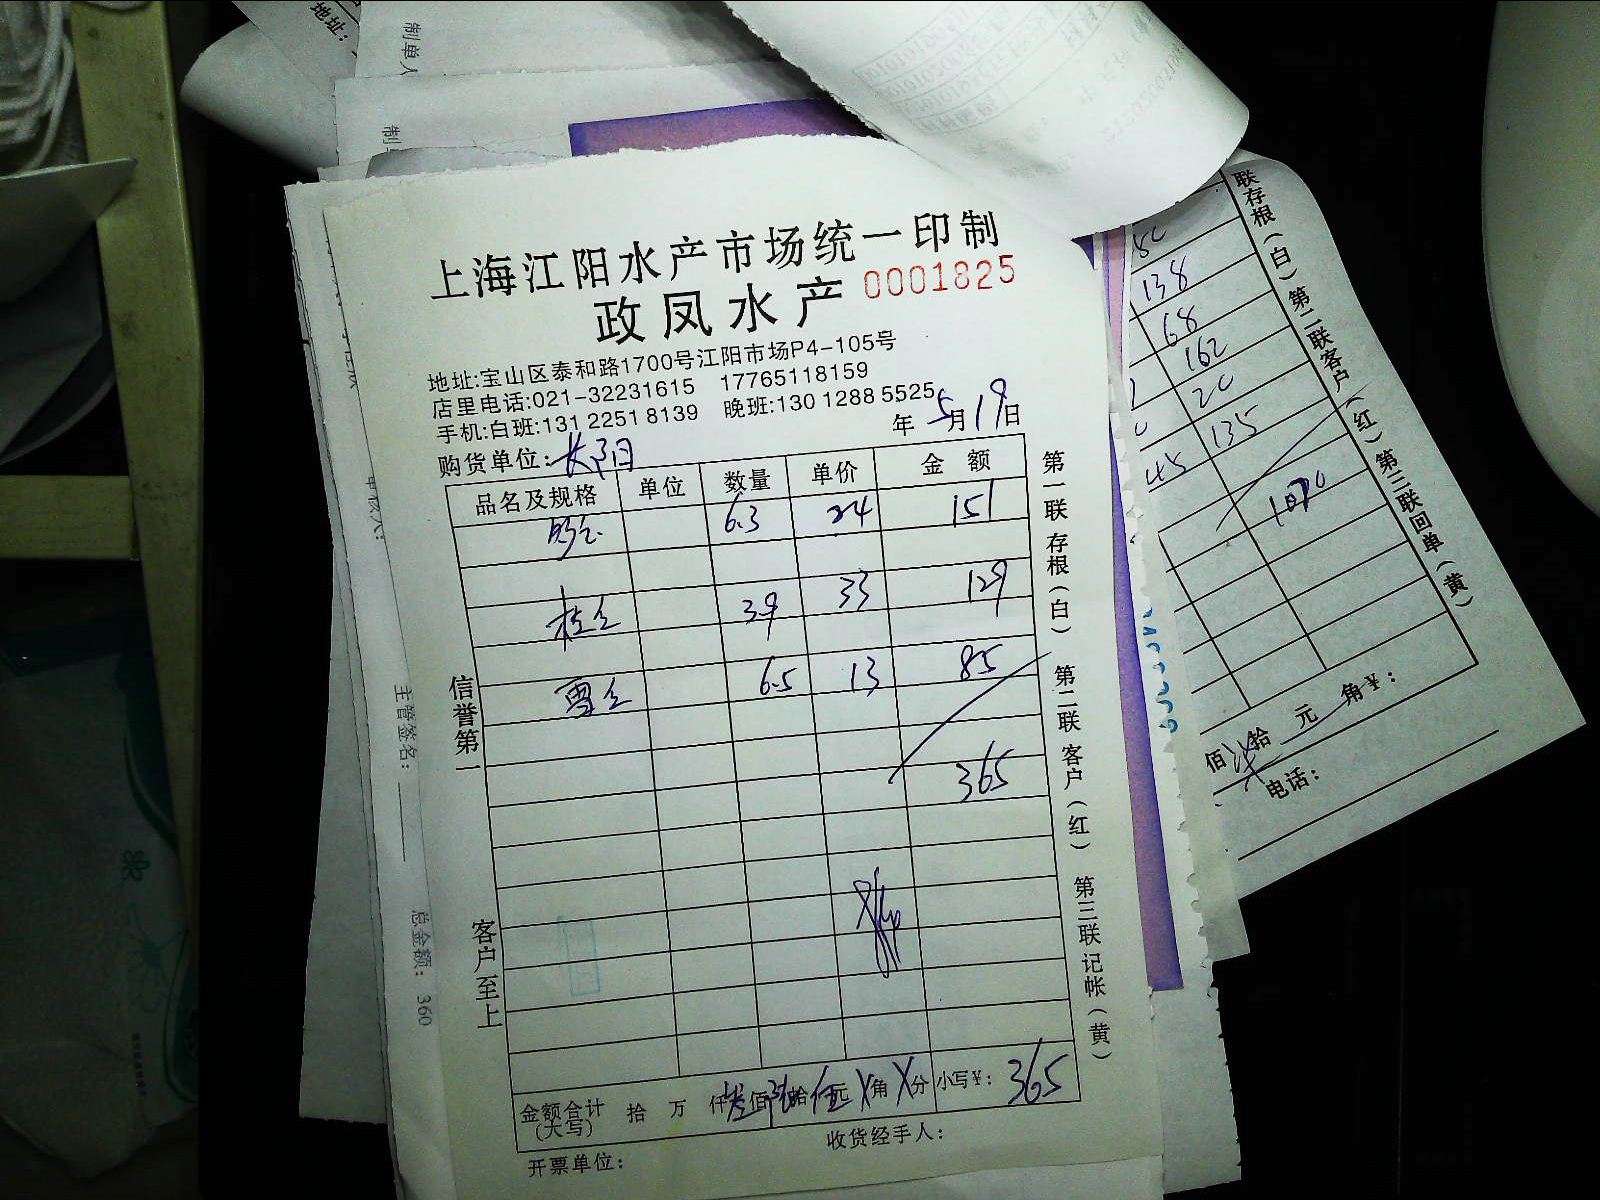 地址：
制单人
制单
上海江阳水产市场统一印制
政凤水产 0001825
地址:宝山区泰和路1700号江阳市场P4-105号
店里电话:021-32231615 17765118159
手机:白班:131 2251 8139 晚班:130 1288 5525
年 5月19日
购货单位：长阳
品名及规格 单位 数量 单价 金 额
6.3 24 151
桂鱼 3.9 33 129
雪鱼 6.5 13 85
365
金额合计(大写) 拾 万 仟 叁佰 陆拾 伍元 X角 X分 小写¥: 365
开票单位： 收货经手人：
信誉第一
客户至上
第一联 存根（白） 第二联 客户（红） 第三联 记帐（黄）
主管签名：
总金额： 360
联存根（白）第二联客户（红）第三联回单（黄）
138
68
162
20
45 135
1070
佰 拾 元 角¥：
电话：